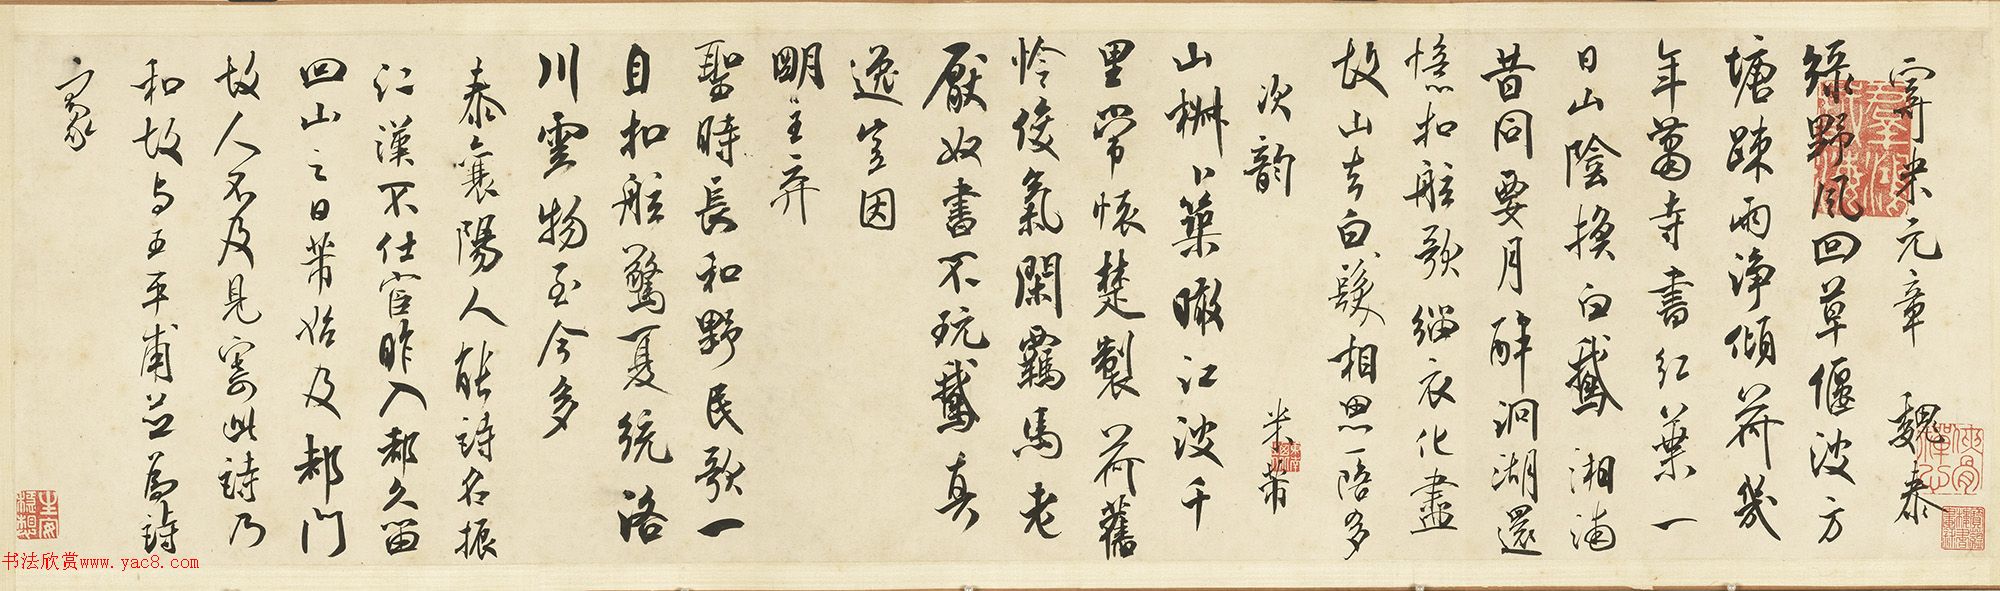 寄米元章 魏泰
綠野風回草偃波方
塘疎雨淨傾荷幾
年蕭寺書紅葉一
日山陰換白鵝湘浦
昔同要月醉洞湖還
憶扣舷歌緇衣化盡
故山去白髮相思一陪多
次韵 米芾
山椒卜築瞰江波千
里常懷楚製荷舊
怜俊氣閑羈馬老
厭奴書不玩鵝真
逸豈因
明主弃
聖時長和野民歌一
自扣舷驚夏統洛
川雲物至今多
泰襄陽人能詩名振
江漢不仕宦昨入都久留
回山之日芾始及都門
故人不及見寄此詩乃
和故与王平甫並為詩
豪
书法欣赏www.yac8.com